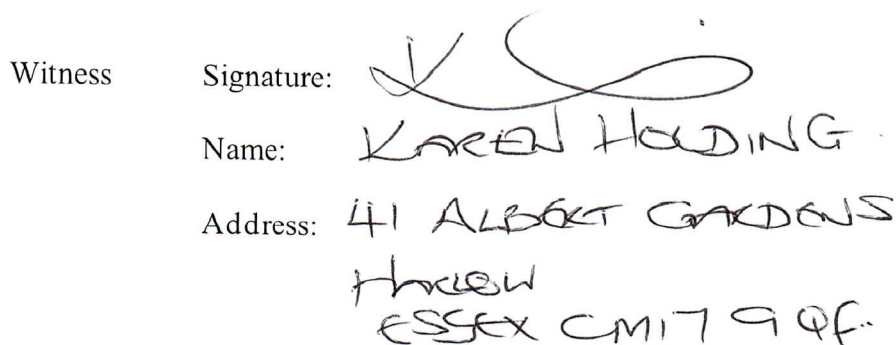 Witness Signature:
Name: KAREN HOLDING
Address: 41 ALBERT GARDENS
HARLOW
ESSEX CM17 9QF.